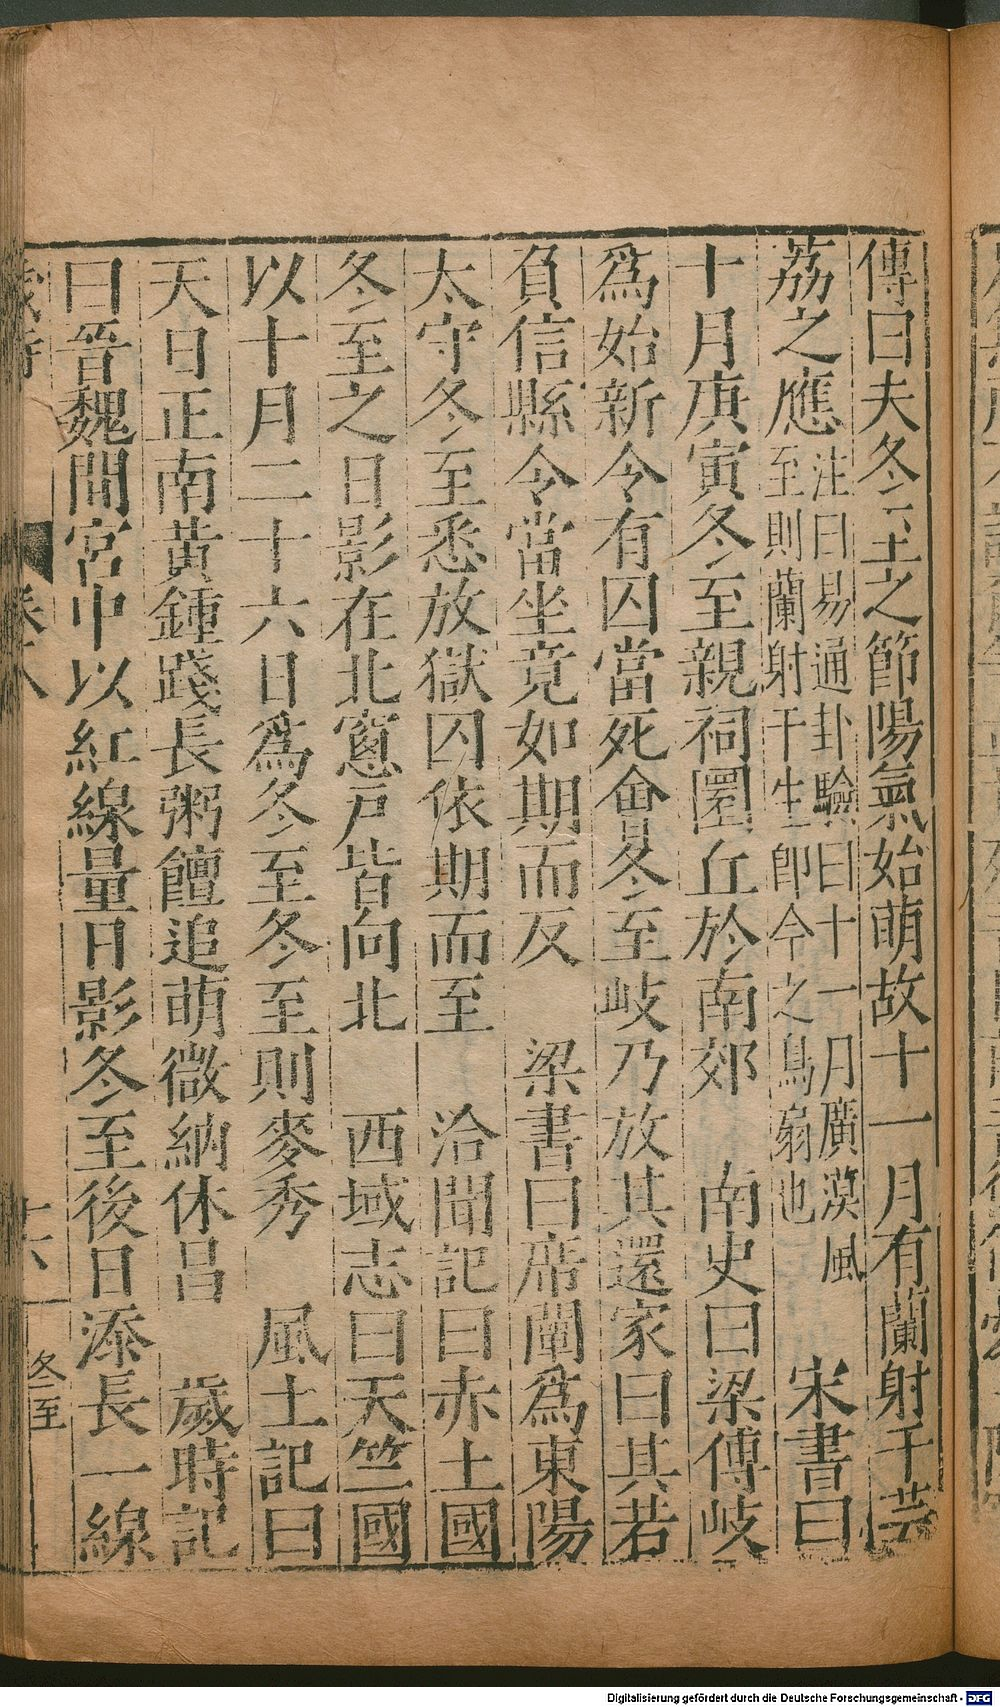 傳曰夫冬至之節陽氣始萌故十一月有蘭射干芸
荔之應注曰易通卦驗曰十一月廣漠風至則蘭射干生卽今之烏扇也 宋書曰
十月庚寅冬至親祠圜丘於南郊 南史曰梁傅岐
爲始新令有囚當死會冬至岐乃放其還家曰其若
負信縣令當坐竟如期而反 梁書曰席闡爲東陽
太守冬至悉放獄囚依期而至 洽聞記曰赤土國
冬至之日影在北窻戶皆向北 西域志曰天竺國
以十月二十六日爲冬至冬至則麥秀 風土記曰
天日正南黃鍾踐長粥饘追萌微納休昌 歲時記
曰晉魏間宮中以紅線量日影冬至後日添長一線
歲時
冬至
Digitalisierung gefördert durch die Deutsche Forschungsgemeinschaft - DFG